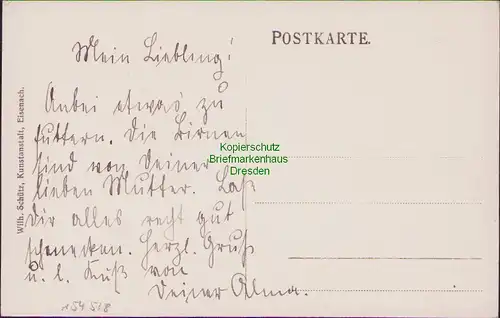 POSTKARTE.
Mein Liebling!
Anbei etwas zu
futtern. Die Birnen
sind von Deiner
lieben Mutter. Laß
Dir alles recht gut
schmecken. Herzl. Gruß
u. l. Kuß von
Deiner Alma.
Wilh. Schütz, Kunstanstalt, Eisenach.
Kopierschutz
Briefmarkenhaus
Dresden
154 518